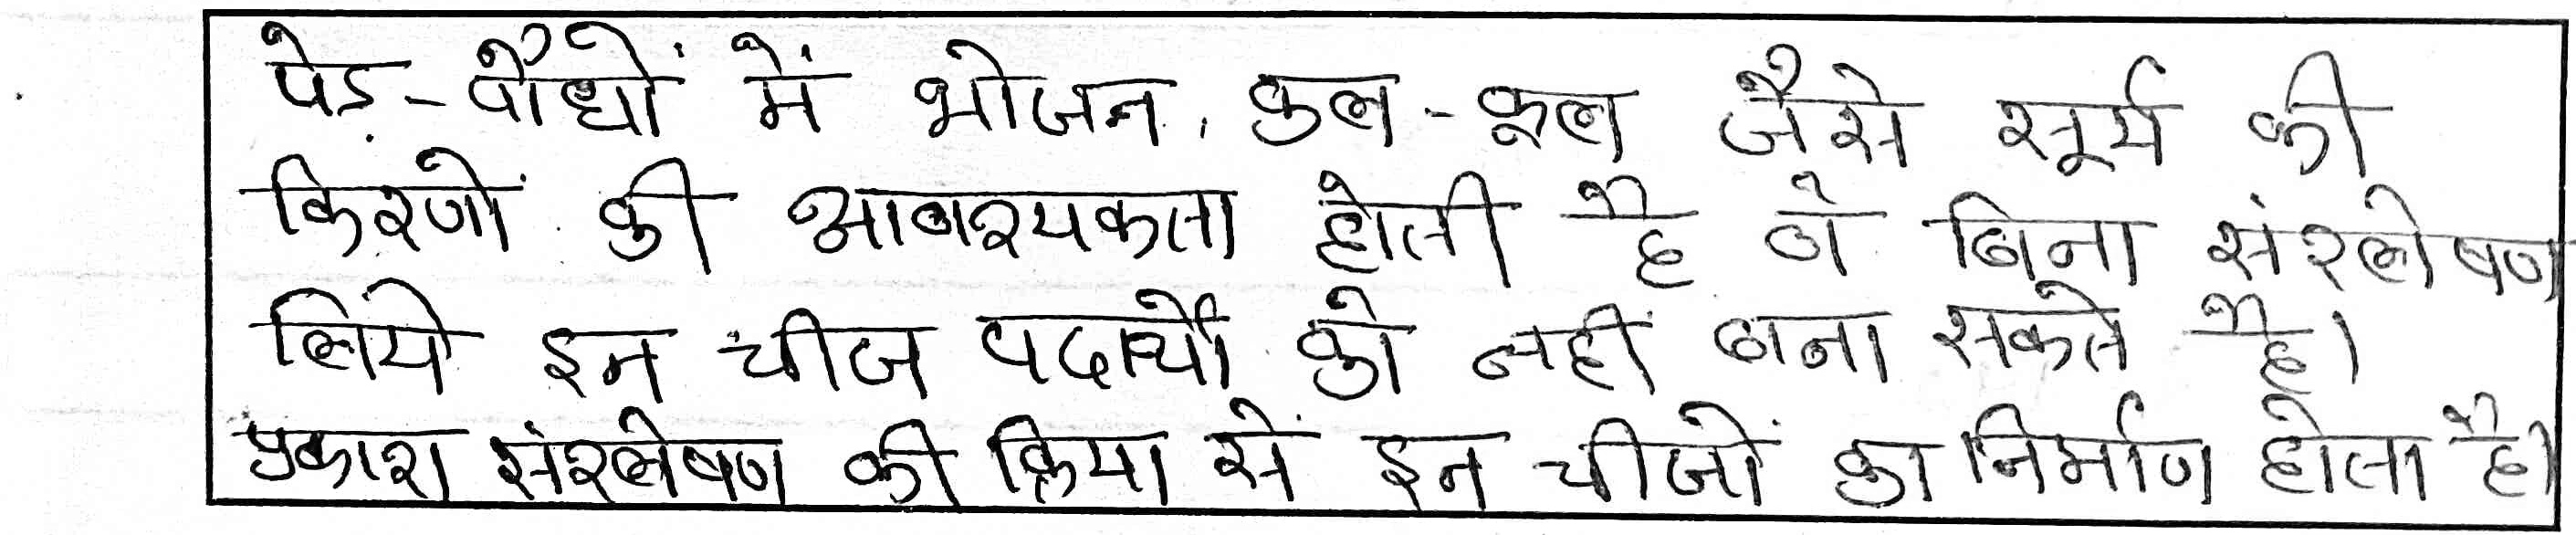 पेड़-पौंधों में भोजन, कुल-फूल जैसे सूर्य की
किरणों की आवश्यकता होती है वे बिना संश्लेषण
लिये इन चीज पदार्थों को नहीं बना सकते है।
प्रकाश संश्लेषण की क्रिया से इन चीजों का निर्माण होता है।